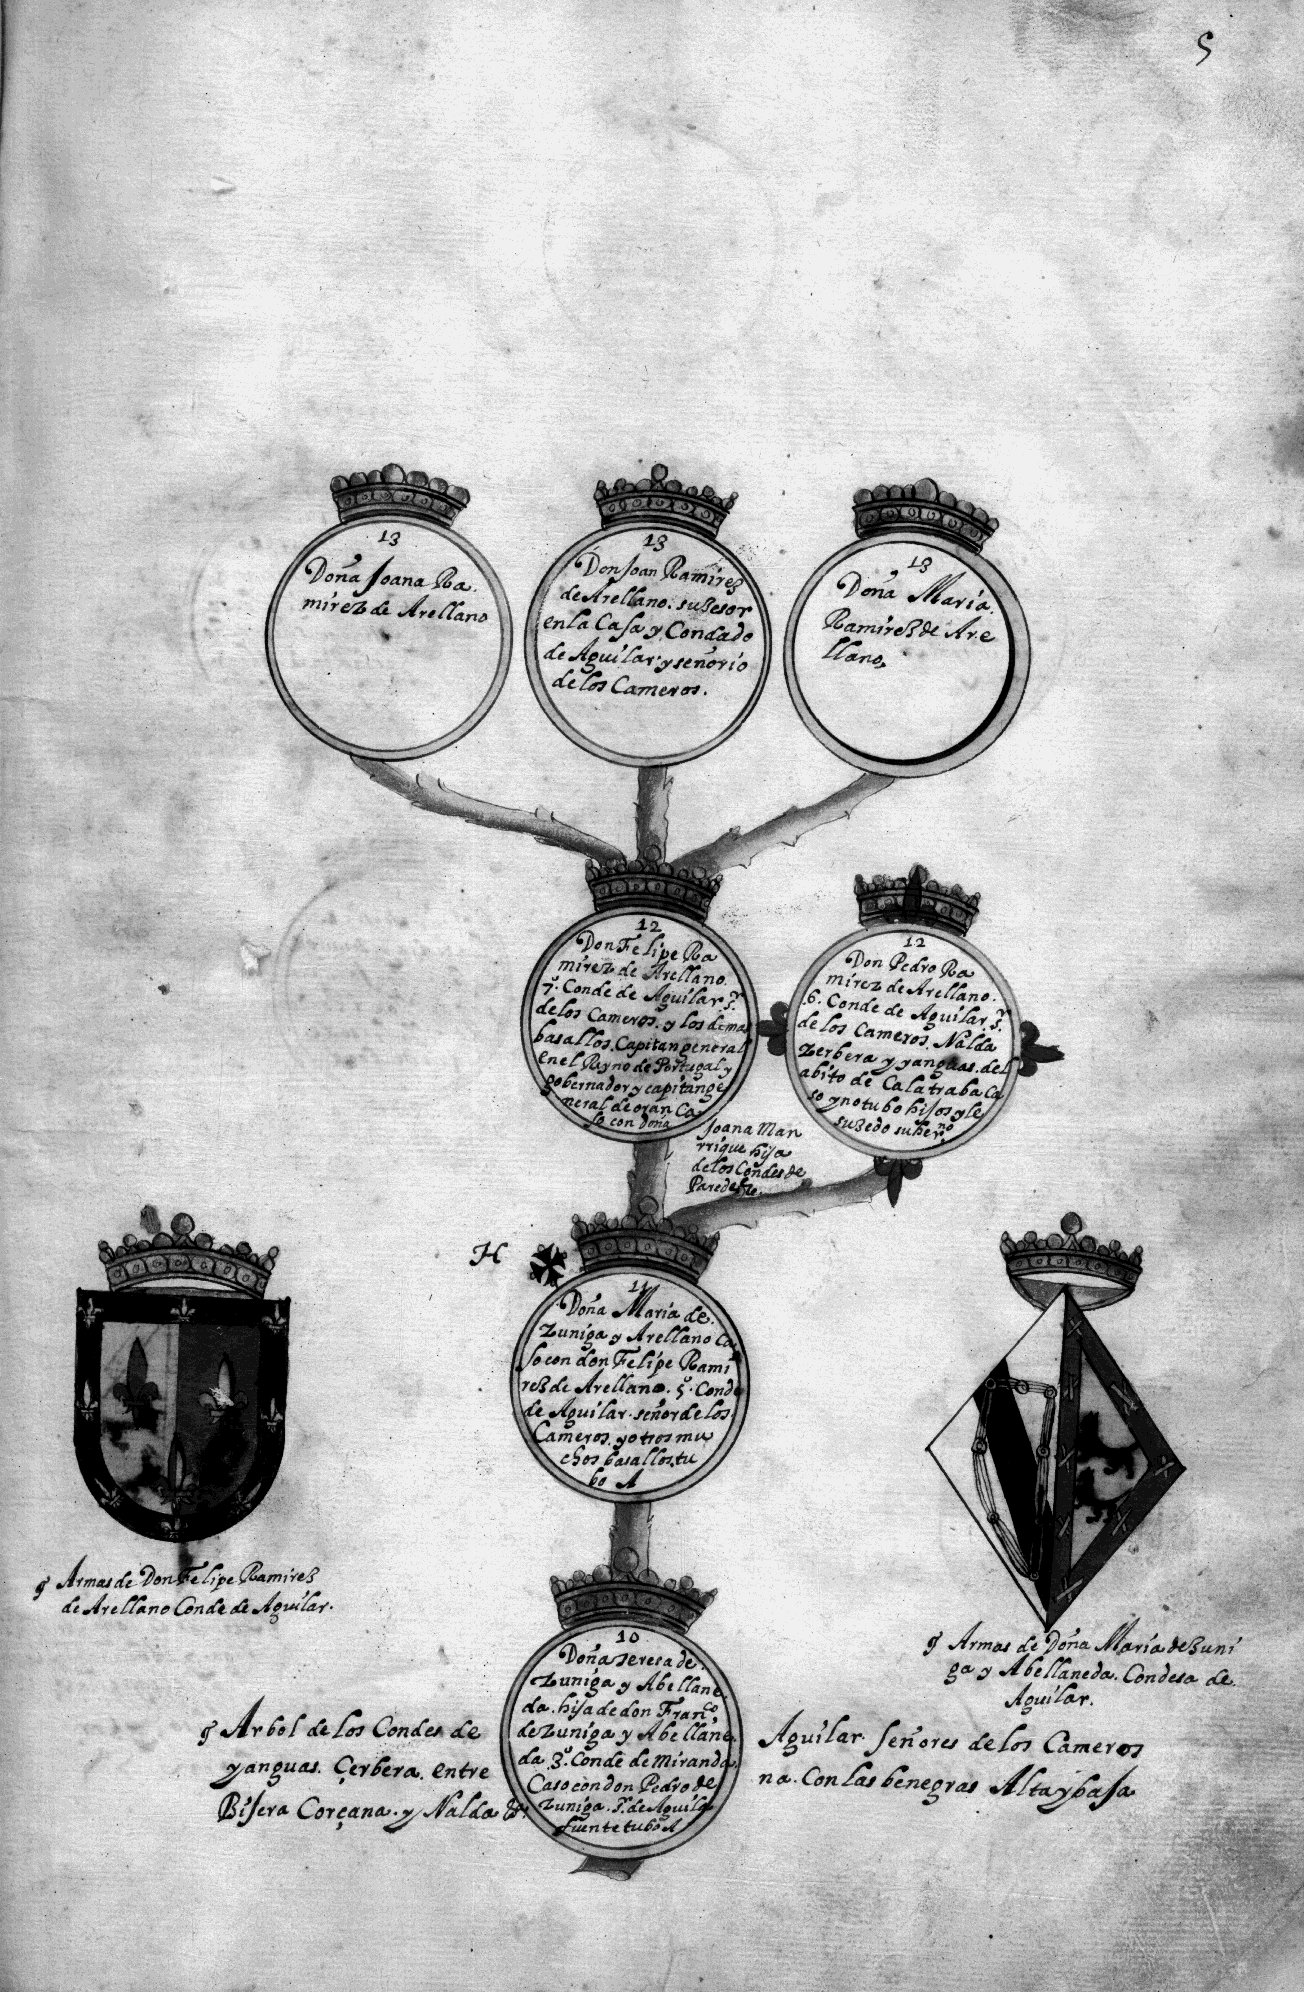 5
13
Doña Joana Ra
mirez de Arellano
13
Don Joan Ramirez
de Arellano. suzesor
en la Casa y Condado
de Aguilar y señorio
de los Cameros.
13
Doña Maria.
Ramirez de Are
llano,
12
Don Felipe Ra
mirez de Arellano.
7º. Conde de Aguilar sr
de los Cameros. y los demas
basallos. Capitan general
en el Reyno de Portugal y
gobernador y capitan ge
neral de oran Ca
so con doña
Joana Man
rrique hija
de los Condes de
Paredes
12
Don Pedro Ra
mirez de Arellano.
.6. Conde de Aguilar sr
de los Cameros. Nalda
Zerbera y yanguas. del
abito de Calatraba Ca
so y no tubo hijos y le
suzedo su herno
H
11
Doña Maria de.
Zuniga y Arellano Ca
so con don Felipe Rami
rez de Arellano. 5º. Conde
de Aguilar. señor de los.
Cameros. y otros mu
chos basallos. tu
bo A
10
Doña teresa de.
Zuniga y Abellane
da. hija de don Franco
de Zuniga y Abellane.
da 3º. Conde de Miranda.
Caso con don Pedro de
Zuniga. sr. de Aguila
fuente tubo A
Armas de Don Felipe Ramirez
de Arellano Conde de Aguilar.
Armas de Doña Maria de Zuni
ga y Abellaneda. Condesa de
Aguilar.
Arbol de los Condes de Aguilar. señores de los Cameros
yanguas. Çerbera. entre na. Con las benegras Alta y baja
Bisera Corçana. y Nalda &